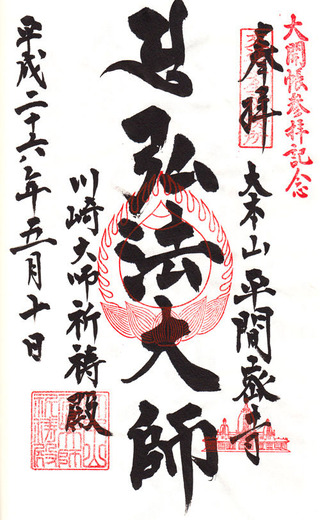 大開帳参拝記念
奉拝
大本山平間寺
弘法大師
川崎大師祈祷殿
平成二十六年五月十日